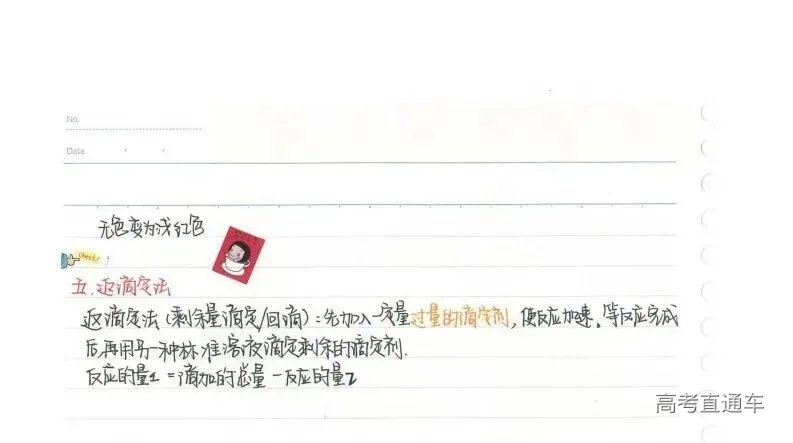 No.
Date
无色变为浅红色
check!
五.返滴定法
返滴定法(剩余量滴定/回滴):先加入一定量过量的滴定剂,使反应加速,等反应完成
后,再用另一种标准溶液滴定剩余的滴定剂.
反应的量1=滴加的总量-反应的量2
高考直通车